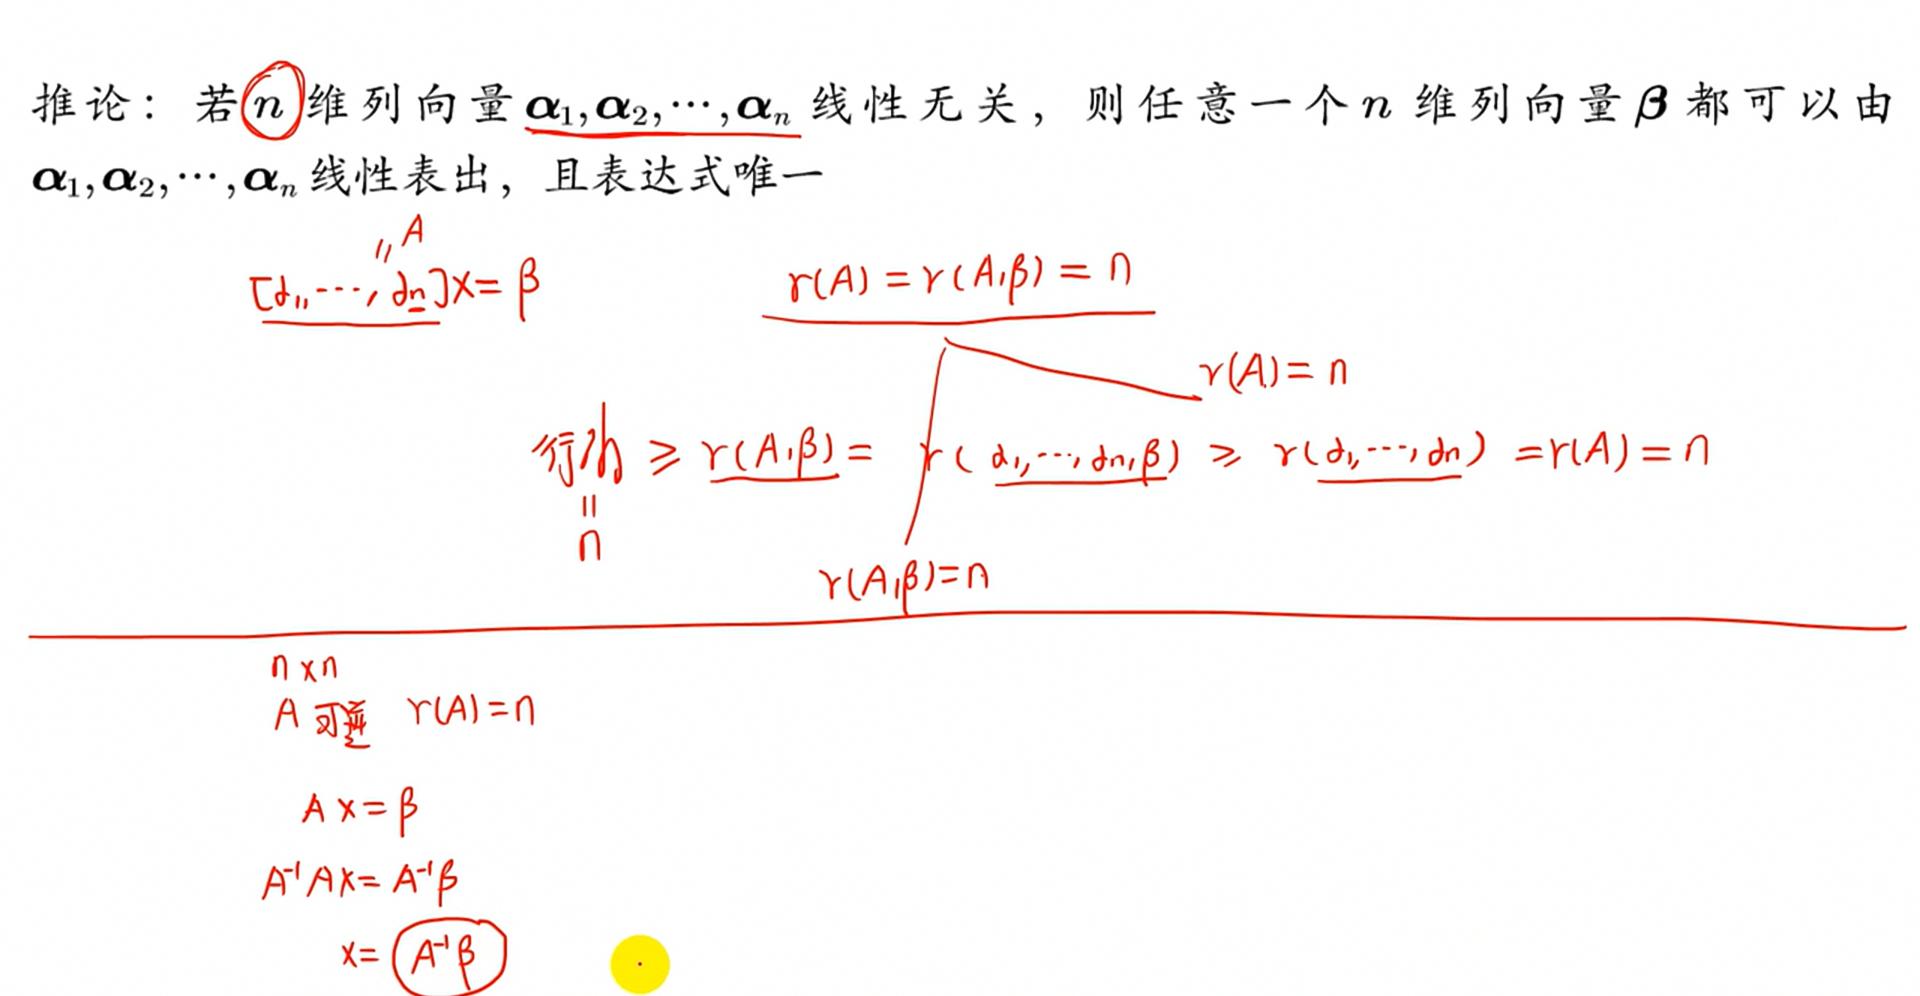 推论：若n维列向量α₁,α₂,⋯,αₙ线性无关，则任意一个n维列向量β都可以由
α₁,α₂,⋯,αₙ线性表出，且表达式唯一
= A
[α₁,⋯,αₙ]x=β
r(A)=r(A,β)=n
r(A)=n
≥r(A,β)=r(α₁,⋯,αₙ,β)≥r(α₁,⋯,αₙ)=r(A)=n
=
n
r(A,β)=n
n×n
A可逆 r(A)=n
Ax=β
A⁻¹Ax=A⁻¹β
x=A⁻¹β